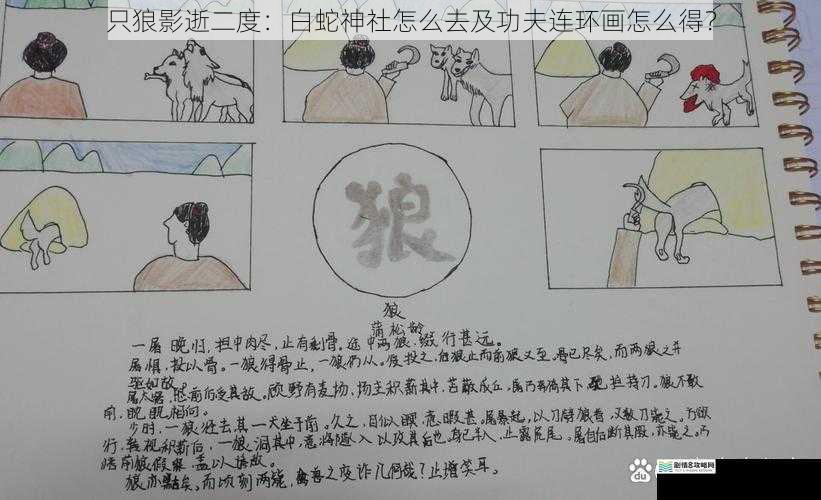 只狼影逝二度：白蛇神社怎么去及功夫连环画怎么得？
狼
狼
蒲松龄
一屠晚归，担中肉尽，止有剩骨。途中两狼，缀行甚远。
屠惧，投以骨。一狼得骨止，一狼仍从。复投之，后狼止而前狼又至。骨已尽矣，而两狼之并
驱如故。
屠大窘，恐前后受其敌。顾野有麦场，场主积薪其中，苫蔽成丘。屠乃奔倚其下，弛担持刀。狼不敢
前，眈眈相向。
少时，一狼径去，其一犬坐于前。久之，目似瞑，意暇甚。屠暴起，以刀劈狼首，又数刀毙之。方欲
行，转视积薪后，一狼洞其中，意将隧入以攻其后也。身已半入，止露尻尾。屠自后断其股，亦毙之。乃
悟前狼假寐，盖以诱敌。
狼亦黠矣，而顷刻两毙，禽兽之变诈几何哉？止增笑耳。
Bai
剧情8攻略网